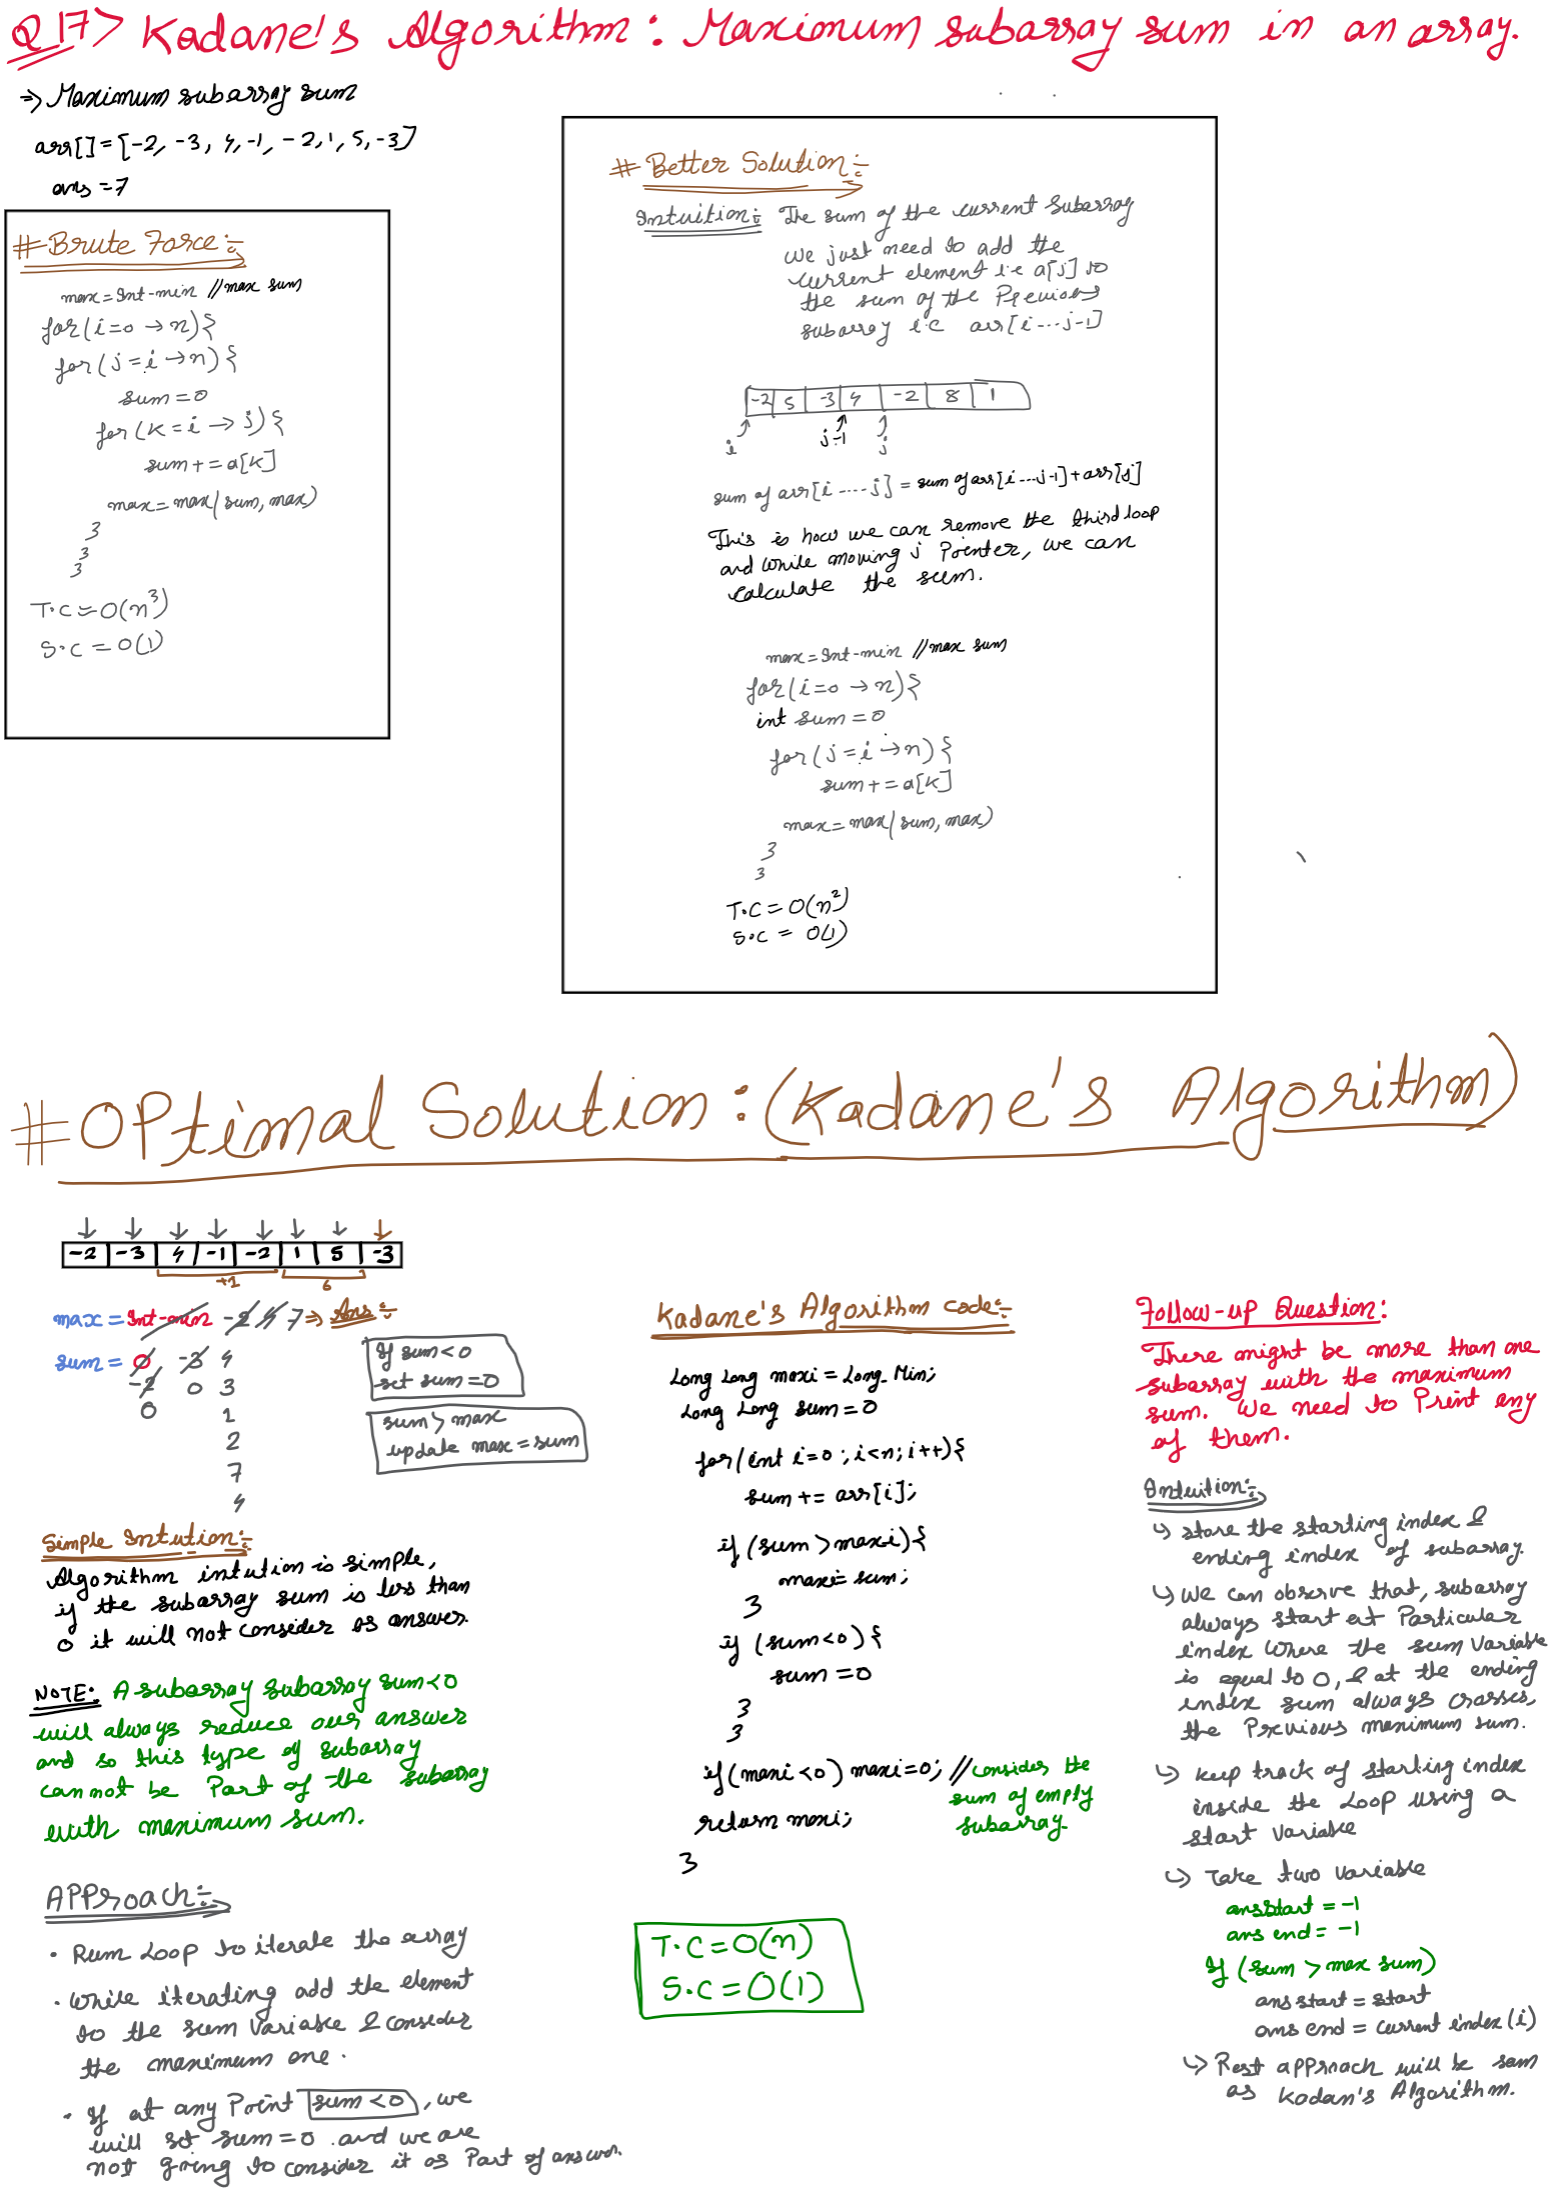 Q17> Kadane's Algorithm: Maximum subarray sum in an array.
=> Maximum subarray sum
arr[] = [-2, -3, 4, -1, -2, 1, 5, -3]
ans = 7
# Brute Force:-
max = Int-min // max sum
for(i=0 → n){
for(j=i → n){
sum = 0
for(k=i → j){
sum += a[k]
max = max(sum, max)
}
}
}
T.C = O(n³)
S.C = O(1)
# Better Solution:-
Intuition:- The sum of the current subarray
we just need to add the
current element i.e a[j] to
the sum of the Previous
subarray i.e arr[i...j-1]
-2 5 -3 4 -2 8 1
i j-1 j
sum of arr[i....j] = sum of arr[i...j-1] + arr[j]
This is how we can remove the third loop
and while moving j Pointer, we can
calculate the sum.
max = Int-min // max sum
for(i=0 → n){
int sum = 0
for(j=i → n){
sum += a[k]
max = max(sum, max)
}
}
T.C = O(n²)
S.C = O(1)
# OPtimal Solution: (Kadane's Algorithm)
-2 -3 4 -1 -2 1 5 -3
+1 6
max = Int-min -2 4 7 => Ans:-
sum = 0 -3 4
-2 0 3
0 1
2
7
4
If sum < 0
set sum = 0
sum > max
update max = sum
Simple Intution:-
Algorithm intution is simple,
if the subarray sum is less than
0 it will not consider as answer.
NOTE: A subarray subarray sum < 0
will always reduce our answer
and so this type of subarray
cannot be Part of the subarray
with maximum sum.
APProach:-
• Run Loop to iterate the array
• While iterating add the element
to the sum variable & consider
the maximum one.
• If at any Point sum < 0, we
will set sum = 0 and we are
not going to consider it as Part of answer.
Kadane's Algorithm code:-
Long Long maxi = Long_Min;
Long Long sum = 0
for(int i=0; i<n; i++){
sum += arr[i];
if(sum > maxi){
maxi = sum;
}
if (sum<0){
sum = 0
}
}
if(maxi < 0) maxi = 0; // consider the
sum of empty
subarray
return maxi;
}
T.C = O(n)
S.C = O(1)
Follow-up Question:
There might be more than one
subarray with the maximum
sum. We need to Print any
of them.
Intuition:-
↳ store the starting index &
ending index of subarray.
↳ We can observe that, subarray
always start at Particular
index where the sum variable
is equal to 0, & at the ending
index sum always crosses,
the Previous maximum sum.
↳ keep track of starting index
inside the Loop using a
start variable
↳ Take two variable
ansstart = -1
ans end = -1
If (sum > max sum)
ans start = start
ans end = current index (i)
↳ Rest approach will be sam
as Kadan's Algorithm.